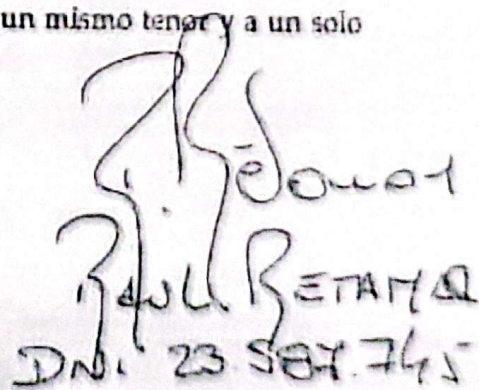 un mismo tenor y a un solo
Raul Retamar
DNI. 23.587.745